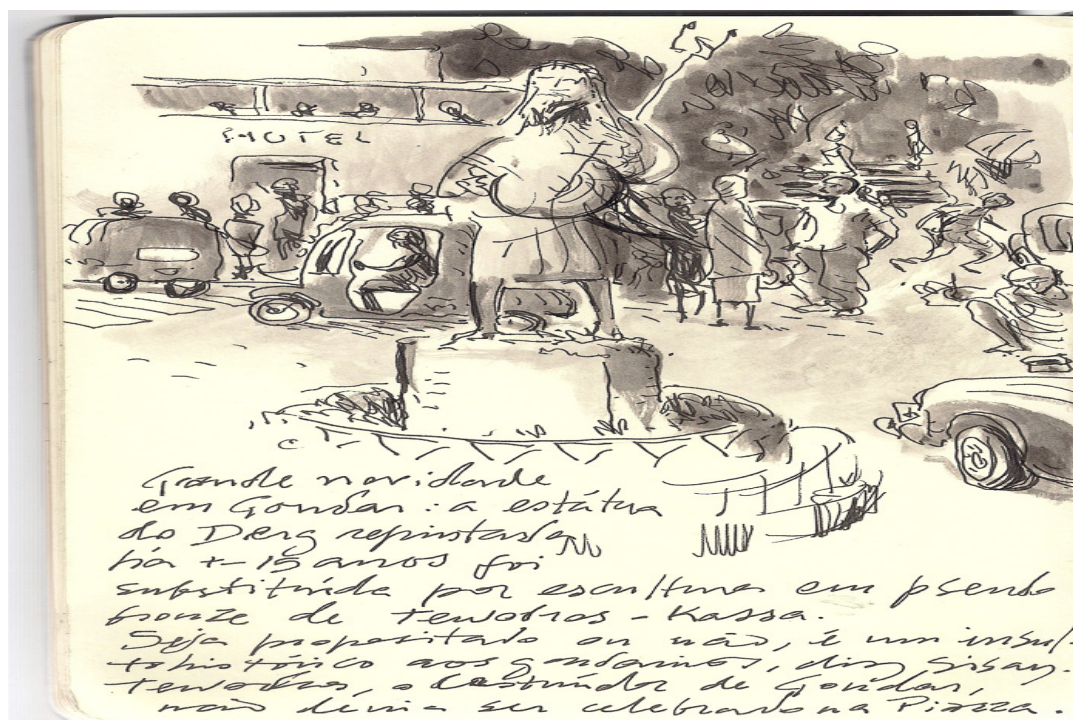 HOTEL
Grande novidade
em Gondar: a estátua
do Derg repintada
há +- 15 anos foi
substituída por escultura em pseudo
bronze de Tewodros - Kassa.
Seja propositado ou não, é um insul-
to histórico aos gondarinos, diz Sisay.
Tewodros, o destruidor de Gondar,
não devia ser celebrado na Piazza.